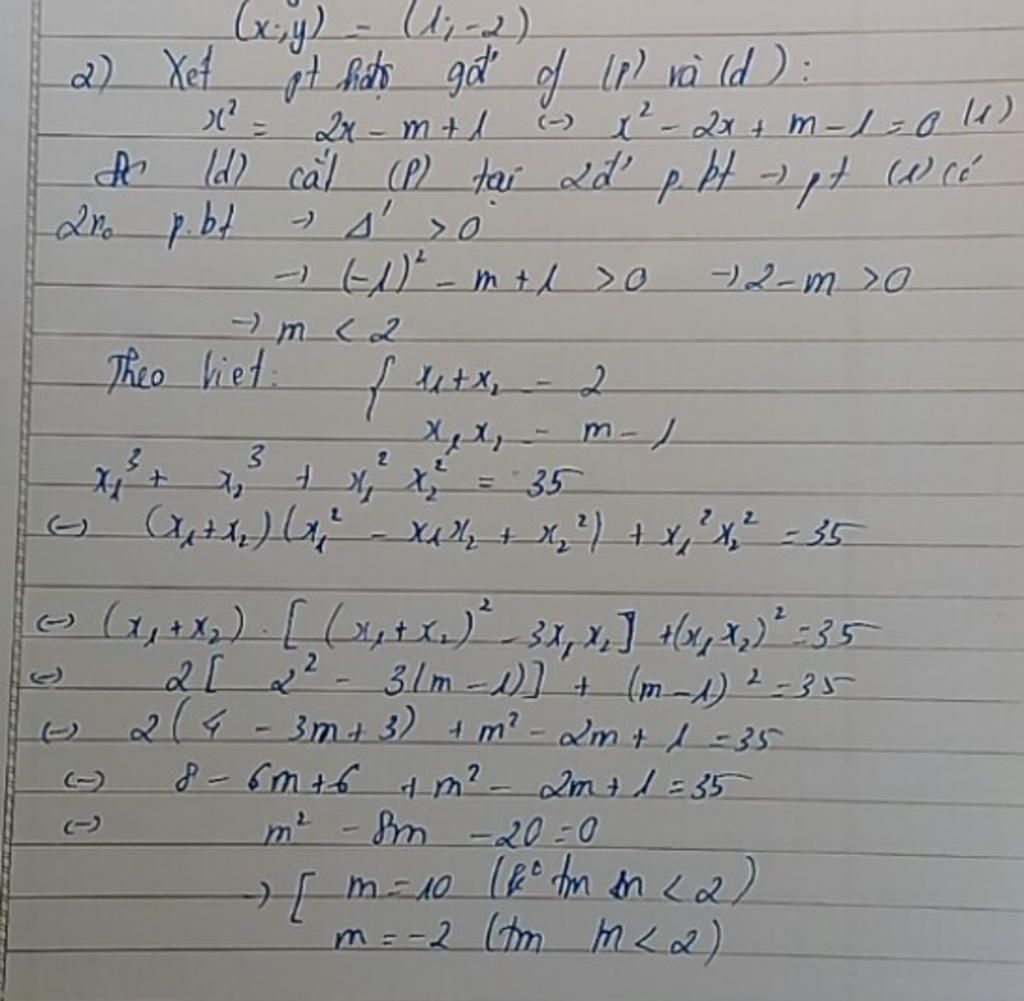 (x;y) = (1;-2)
2) Xét pt hđộ gđ' of (P) và (d):
x² = 2x - m + 1 <-> x² - 2x + m - 1 = 0 (1)
(d) cắt (P) tại 2đ' p.bt -> pt (1) có
2no p.bt -> Δ' > 0
-> (-1)² - m + 1 > 0 -> 2 - m > 0
-> m < 2
Theo Viet: { x₁ + x₂ = 2
x₁x₂ = m - 1
x₁³ + x₂³ + x₁² x₂² = 35
<-> (x₁ + x₂)(x₁² - x₁x₂ + x₂²) + x₁²x₂² = 35
<-> (x₁ + x₂) . [(x₁ + x₂)² - 3x₁x₂] + (x₁x₂)² = 35
<-> 2[2² - 3(m - 1)] + (m - 1)² = 35
<-> 2(4 - 3m + 3) + m² - 2m + 1 = 35
<-> 8 - 6m + 6 + m² - 2m + 1 = 35
<-> m² - 8m - 20 = 0
-> [ m = 10 (k° tm m < 2)
m = -2 (tm m < 2)